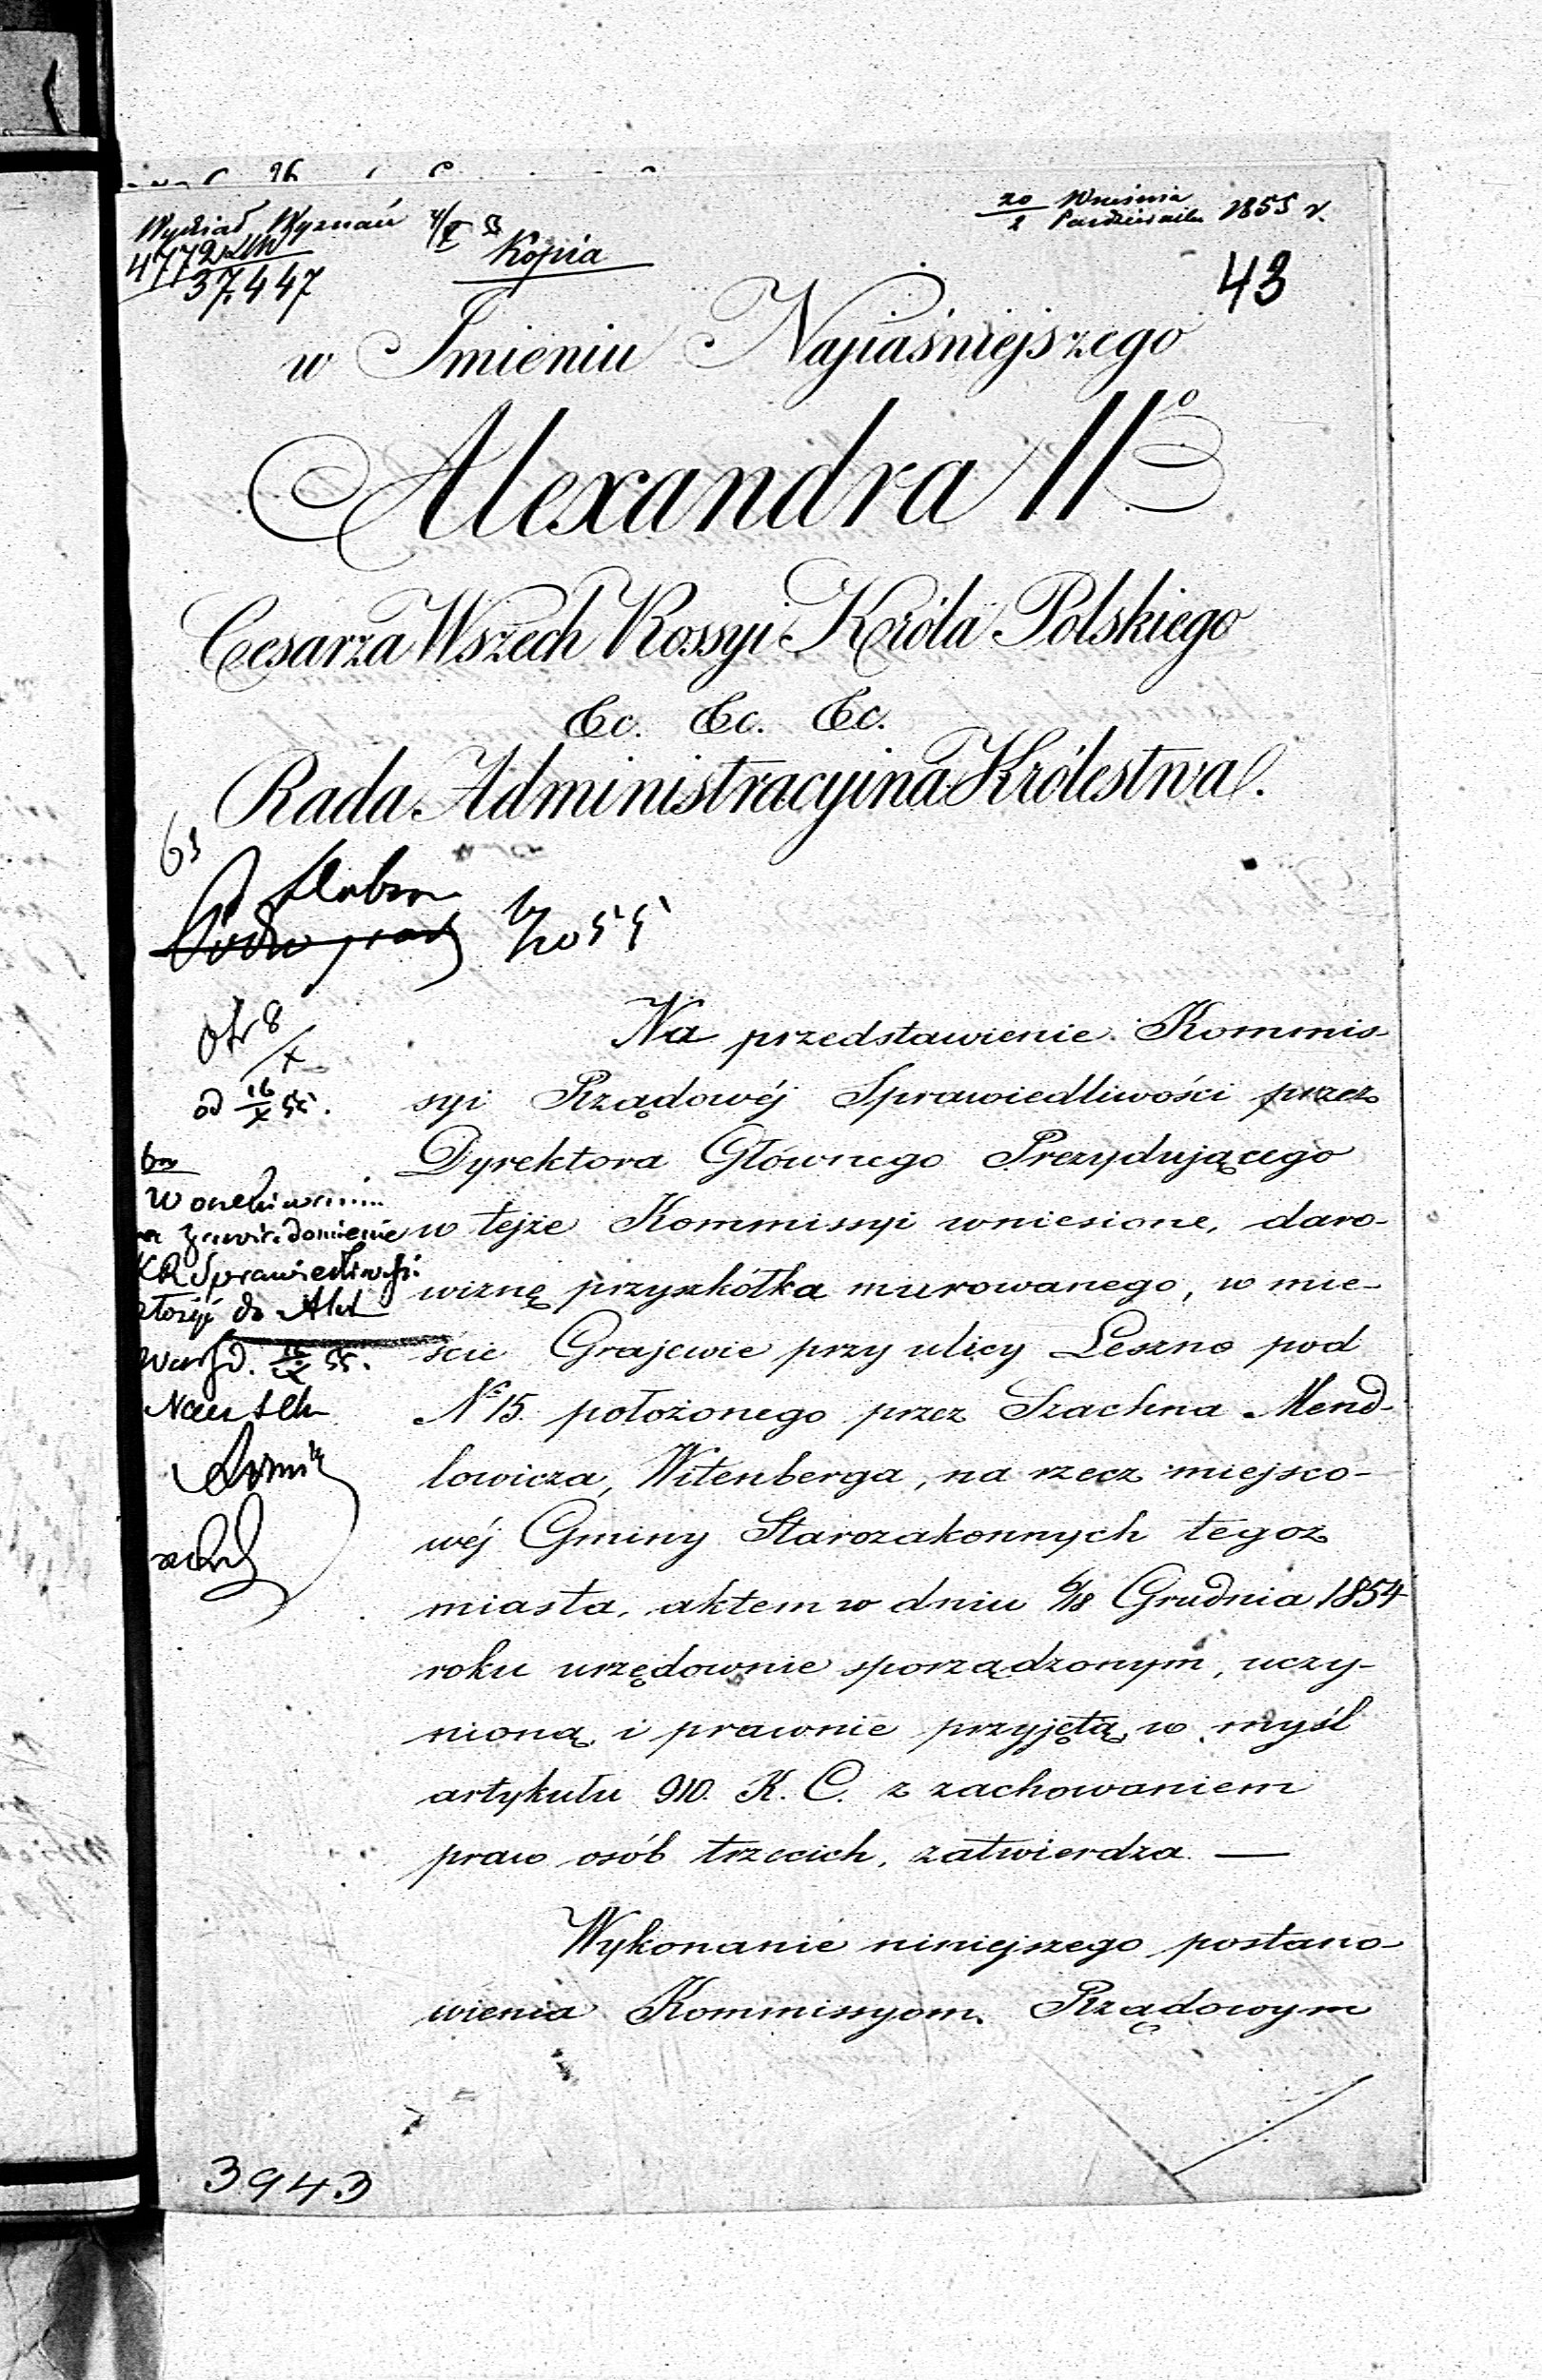 Wydział Wyznań
4772
37.447
Kopia
20 Września
2 Października 1855 r.
43
w Imieniu Najiaśniejszego
Alexandra IIº
Cesarza Wszech Rossyi Króla Polskiego
&c. &c. &c.
Rada Administracyina Królestwa.
od 16/X 55.
Na przedstawienie Kommis-
syi Rządowéj Sprawiedliwości przez
Dyrektora Głównego Prezydującego
w tejże Kommissyi wniesione, daro-
wiznę przyszkółka murowanego, w mie-
ście Grajewie przy ulicy Leszno pod
Nº 15. położonego przez Szachna Mend-
lowicza, Witenberga, na rzecz miejsco-
wéj Gminy Starozakonnych tegoż
miasta, aktem w dniu 6/18 Grudnia 1854
roku urzędownie sporządzonym, uczy-
nioną, i prawnie przyjętą, w myśl
artykułu 910. K. C. z zachowaniem
praw osób trzecich, zatwierdza. —
Wykonanie niniejszego postano-
wienia Kommissyom Rządowym
zawiadomienie
KR Sprawiedliwości
do Akt
3943